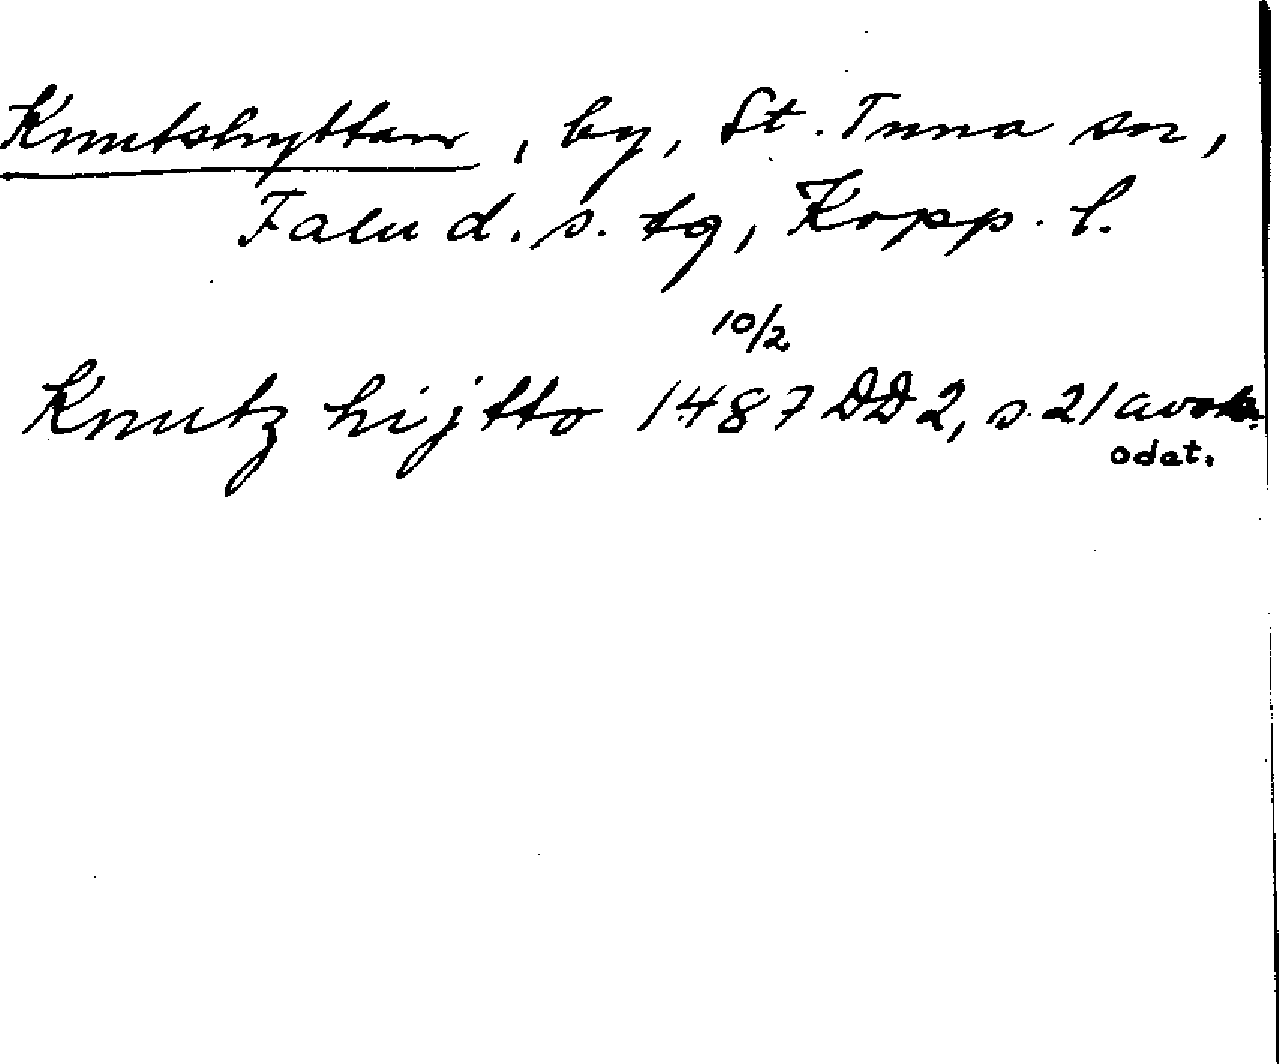 Knutshyttan, by, St. Tuna sn,
Falu d. s. tg, Kopp. l.
10/2
Knutz hijtto 1487 DD 2, s. 21 avskr.
odat.